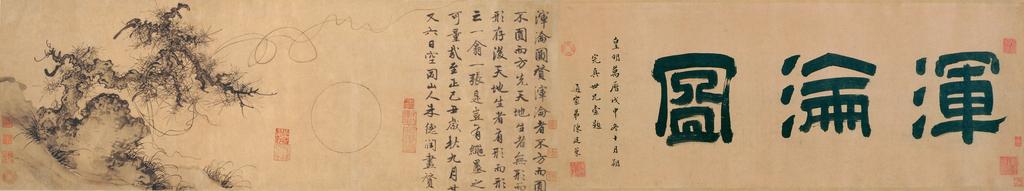 渾淪圖
皇明萬曆戊申冬十月朔
完真世兄索題
通家弟陳
渾淪圖贊渾淪者不方而圓
不圓而方先天地生者無形而
形存後天地生者有形而形
亡一翕一張是豈有繩墨之
可量哉至正己丑歲秋九月廿
又六日空同山人朱德潤畫贊